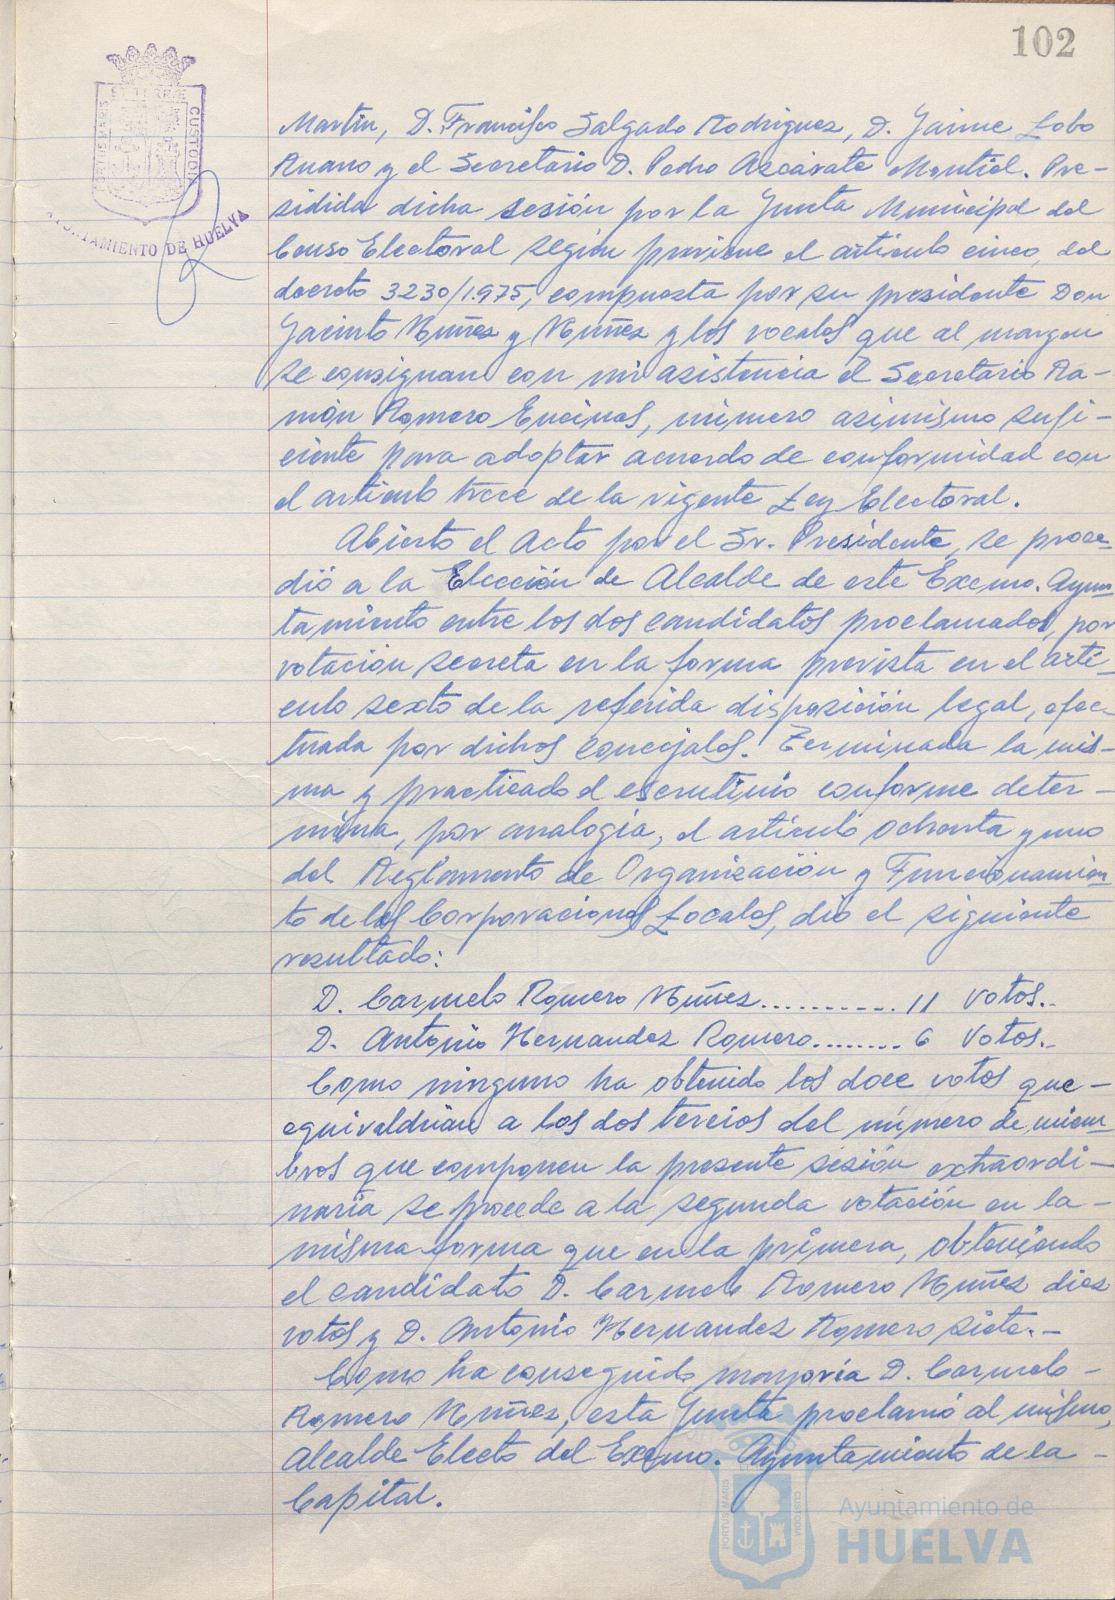 102
PORTUS MARIS ET TERRAE CUSTODIA
AYUNTAMIENTO DE HUELVA
Martín, D. Francisco Salgado Rodriguez, D. Jaime Lobo
Ruano y el Secretario D. Pedro Azcárate Montiel. Pre-
sidida dicha sesión por la Junta Municipal del
Censo Electoral según previene el articulo cinco, del
decreto 3230/1.975, compuesta por su presidente Don
Jacinto Núñez y Núñez y los vocales que al margen
se consignan con mi asistencia el Secretario Ra-
món Romero Encinas, número asimismo sufi-
ciente para adoptar acuerdo de conformidad con
el articulo trece de la vigente Ley Electoral.
Abierto el Acto por el Sr. Presidente, se proce-
dió a la Elección de Alcalde de este Excmo. Ayun
tamiento entre los dos candidatos proclamados, por
votación secreta en la forma prevista en el artí-
culo sexto de la referida disposición legal, efec-
tuada por dichos concejales. Terminada la mis-
ma y practicado el escrutinio conforme deter-
mina, por analogía, el artículo ochenta y uno
del Reglamento de Organización y Funcionamien
to de las Corporaciones Locales, dió el siguiente
resultado:
D. Carmelo Romero Núñez........... 11 votos.-
D. Antonio Hernandez Romero........ 6 votos.-
Como ninguno ha obtenido los doce votos que-
equivaldrían a los dos tercios del número de miem-
bros que componen la presente sesión extraordi-
naria se procede a la segunda votación en la-
misma forma que en la primera, obteniendo
el candidato D. Carmelo Romero Núñez diez
votos y D. Antonio Hernandez Romero siete.-
Como ha conseguido mayoría D. Carmelo-
Romero Núñez, esta Junta proclamó al mismo,
Alcalde Electo del Excmo. Ayuntamiento de la-
Capital.
PORTUS MARIS CUSTODIA
Ayuntamiento de
HUELVA